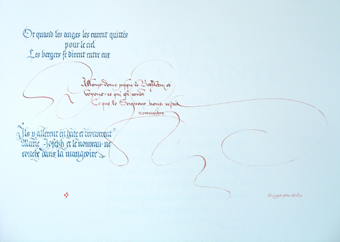 Or quand les anges les eurent quittés
pour le ciel
Les bergers se dirent entre eux
Allons donc jusqu'à Bethléem et
voyons ce qui est arrivé
Et que le Seigneur nous a fait
connaître
Ils y allèrent en hâte et trouvèrent
Marie, Joseph et le nouveau-né
couché dans la mangeoire